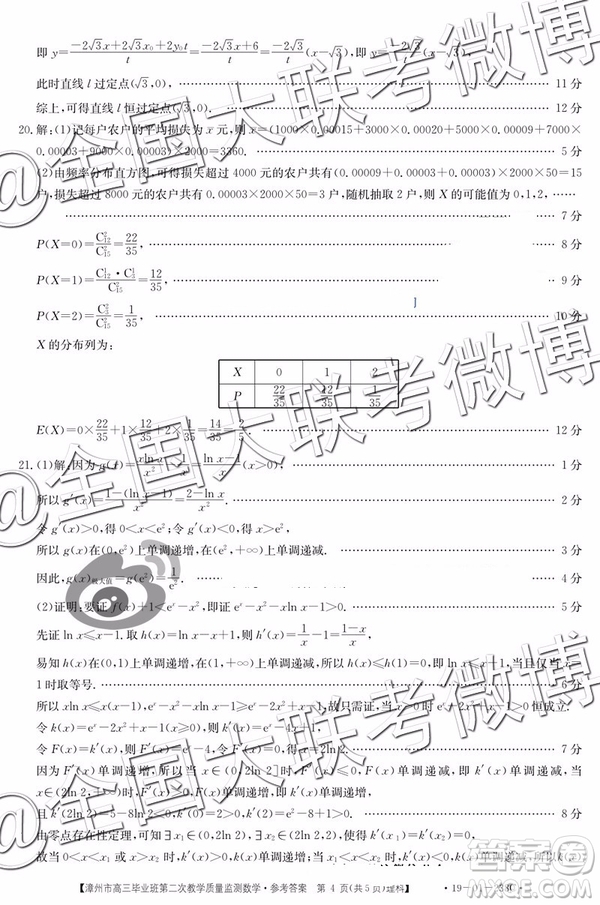 即 y=(-2√3x+2√3x₀+2y₀t)/t=(-2√3x+6)/t=(-2√3)/t(x-√3),即 y=(-2√3)/t(x-√3).
此时直线 l 过定点(√3,0). 11 分
综上,可得直线 l 恒过定点(√3,0). 12 分
20.解:(1)记每户农户的平均损失为 x 元,则 x=(1000×0.00015+3000×0.00020+5000×0.00009+7000×
0.00003+9000×0.00003)×2000=3360. 5 分
(2)由频率分布直方图,可得损失超过 4000 元的农户共有(0.00009+0.00003+0.00003)×2000×50=15
户,损失超过 8000 元的农户共有 0.00003×2000×50=3 户,随机抽取 2 户,则 X 的可能值为 0,1,2,
7 分
P(X=0)=C²₁₂/C²₁₅=22/35, 8 分
P(X=1)=C¹₁₂·C¹₃/C²₁₅=12/35, 9 分
P(X=2)=C²₃/C²₁₅=1/35, 10 分
X 的分布列为:
X 0 1 2
P 22/35 12/35 1/35
E(X)=0×22/35+1×12/35+2×1/35=14/35=2/5. 12 分
21.(1)解:因为 g(x)=(xln x)/x²-x/x²=(ln x-1)/x(x>0), 1 分
所以 g′(x)=(1-(ln x-1))/x²=(2-ln x)/x². 2 分
令 g′(x)>0,得 0<x<e²;令 g′(x)<0,得 x>e²,
所以 g(x)在(0,e²)上单调递增,在(e²,+∞)上单调递减. 3 分
因此,g(x)最大值=g(e²)=1/e². 4 分
(2)证明:要证 f(x)+1<eˣ-x²,即证 eˣ-x²-xln x-1>0. 5 分
先证 ln x≤x-1.取 h(x)=ln x-x+1,则 h′(x)=1/x-1=(1-x)/x,
易知 h(x)在(0,1)上单调递增,在(1,+∞)上单调递减,故 h(x)≤h(1)=0,即 ln x≤x-1,当且仅当 x=
1 时取等号. 6 分
所以 xln x≤x(x-1),eˣ-x²-xln x-1≥eˣ-2x²+x-1.故只需证,当 x>0 时,eˣ-2x²+x-1>0 恒成立.
令 k(x)=eˣ-2x²+x-1(x≥0),则 k′(x)=eˣ-4x+1.
令 F(x)=k′(x),则 F′(x)=eˣ-4,令 F′(x)=0,解得 x=2ln 2. 7 分
因为 F′(x)单调递增,所以当 x∈(0,2ln 2]时,F′(x)≤0,F(x)单调递减,
∈(2ln 2,+∞)时,F′(x)>0,F(x)单调递增,
且 k′(2ln 2)=5-8ln 2<0,k′(0)=2>0,k′(2)=e²-8+1>0. 8 分
由零点存在性定理,可知∃x₁∈(0,2ln 2),∃x₂∈(2ln 2,2),使得 k′(x₁)=k′(x₂)=0,
故当 0<x<x₁或
【漳州市高三毕业班第二次教学质量监测数学·参考答案 第 4 页(共 5 页)理科】
@全国大联考微博
@全国大联考微博
@全国大联考微博